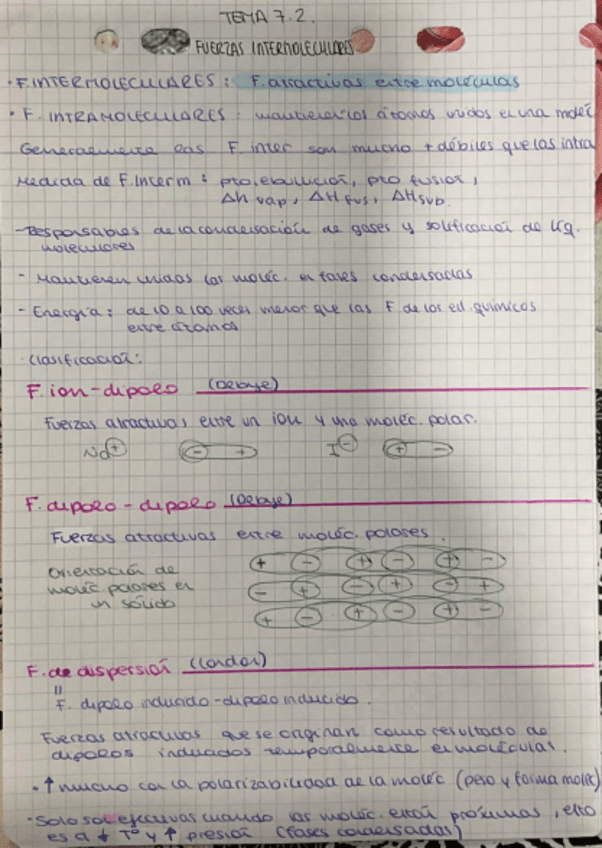 TEMA 7.2.
FUERZAS INTERMOLECULARES
· F. INTERMOLECULARES : F. atractivas entre moléculas
· F. INTRAMOLECULARES : mantienen los átomos unidos en una moléc
Generalmente las F. inter son mucho + débiles que las intra
Medida de F. Interm : pto. ebullición, pto fusión,
ΔH vap, ΔH fus, ΔH sub.
- Responsables de la condensación de gases y solificación de líq.
moleculares
- Mantienen unidas las moléc. en fases condensadas
- Energía : de 10 a 100 veces menor que las F de los ed. químicos
entre átomos
Clasificación :
F. ion-dipolo (Debye)
Fuerzas atractivas entre un ion y una moléc. polar.
Na + - + I - + -
F. dipolo - dipolo (Debye)
Fuerzas atractivas entre moléc. polares.
Orientación de
moléc. polares en
un sólido
+ - + - + -
- + - + - +
+ - + - + -
F. de dispersión (London)
"
F. dipolo inducido - dipolo inducido.
Fuerzas atractivas que se originan como resultado de
dipolos inducidos temporalmente en moléculas.
· ↑ mucho con la polarizabilidad de la moléc (peso y forma moléc)
· Solo son efectivas cuando las moléc. están próximas, esto
es a ↓ Tº y ↑ presión (fases condensadas)